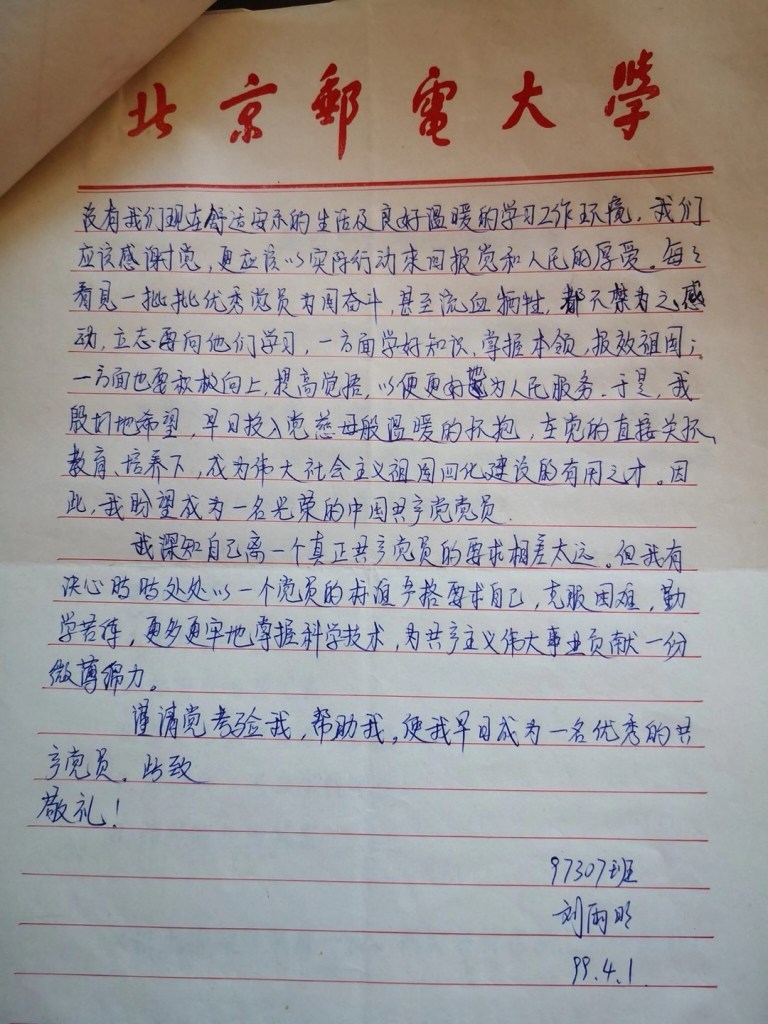 北京郵電大學
没有我们现在舒适安乐的生活及良好温暖的学习工作环境。我们
应该感谢党,更应该以实际行动来回报党和人民的厚爱。每每
看见一批批优秀党员为国奋斗,甚至流血牺牲,都不禁为之感
动,立志要向他们学习,一方面学好知识,掌握本领,报效祖国;
一方面也要积极向上,提高觉悟,以便更好地为人民服务。于是,我
殷切地希望,早日投入党慈母般温暖的怀抱,在党的直接关怀、
教育、培养下,成为伟大社会主义祖国四化建设的有用之才。因
此,我盼望成为一名光荣的中国共产党党员。
我深知自己离一个真正共产党员的要求相差太远。但我有
决心时时处处以一个党员的标准严格要求自己,克服困难,勤
学苦练,更多更牢地掌握科学技术,为共产主义伟大事业贡献一份
微薄绵力。
谨请党考验我,帮助我,使我早日成为一名优秀的共
产党员。此致
敬礼!
97307班
刘雨明
99.4.1